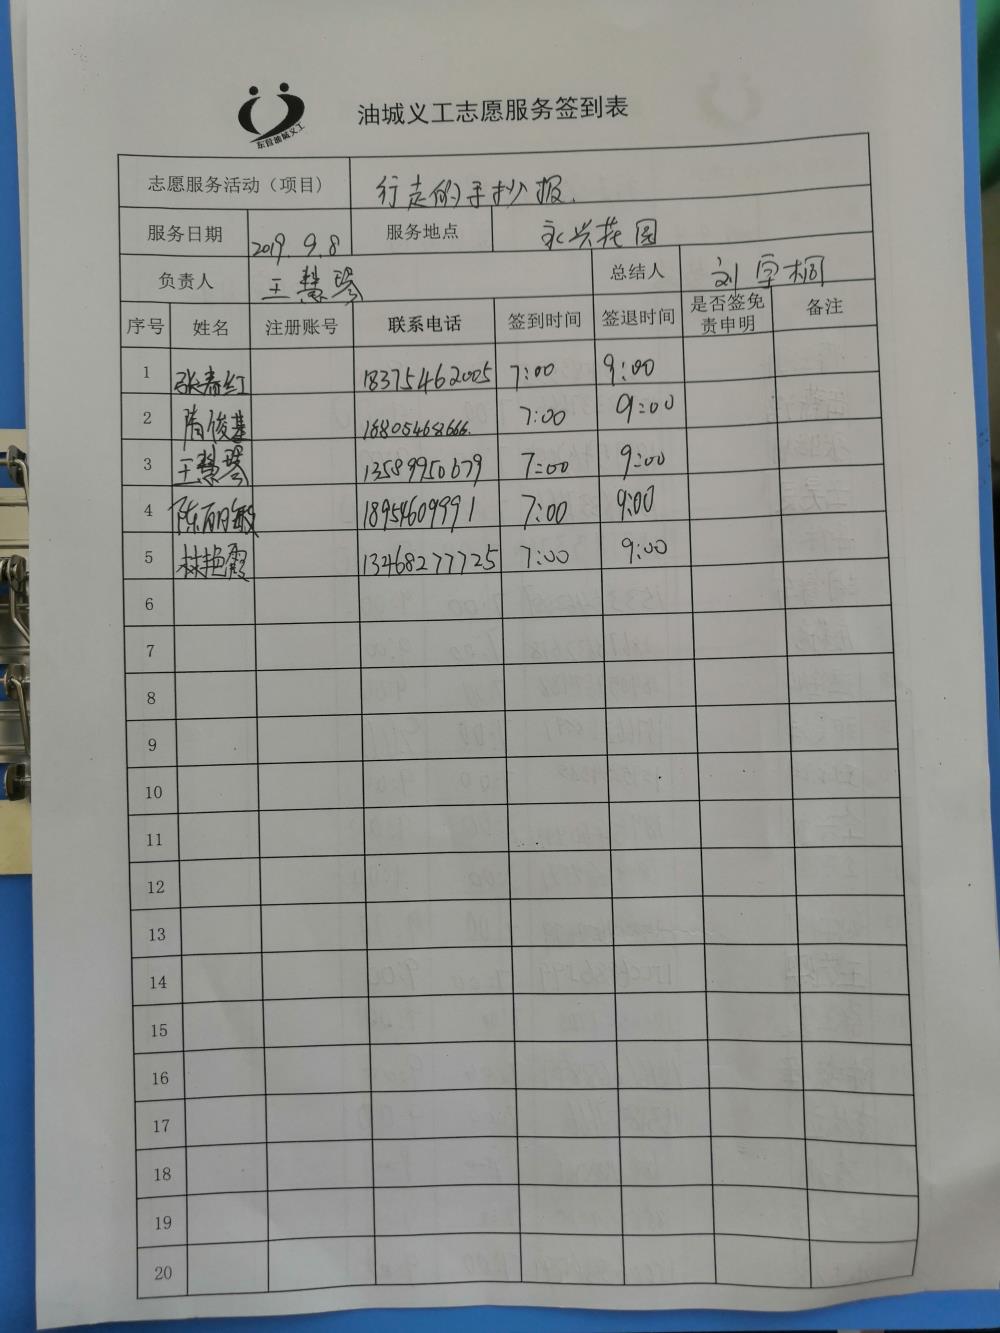 东营油城义工
油城义工志愿服务签到表
志愿服务活动（项目） 行走的手抄报.
服务日期 2019.9.8 服务地点 永兴花园
负责人 王慧琴 总结人 刘宇桐
序号 姓名 注册账号 联系电话 签到时间 签退时间 是否签免责申明 备注
1 张春红 18375462005 7:00 9:00
2 隋俊基 7:00 9:00
3 王慧琴 13589950679 7:00 9:00
4 陈丽敏 18954609991 7:00 9:00
5 林艳霞 13468277725 7:00 9:00
6
7
8
9
10
11
12
13
14
15
16
17
18
19
20